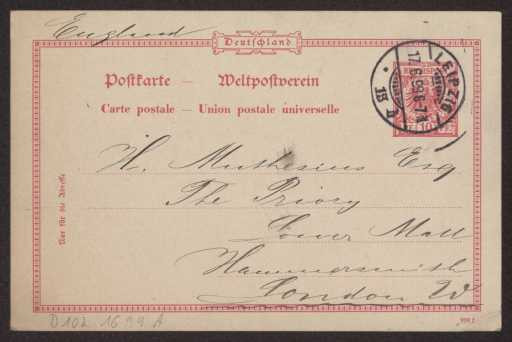 England
Deutschland
Postkarte — Weltpostverein
Carte postale — Union postale universelle
LEIPZIG
17.6.99.6-7
13
10
H. Muthesius Esq
The Priory
Lower Mall
Hammersmith
London W
Nur für die Adresse
D 102 1699 A